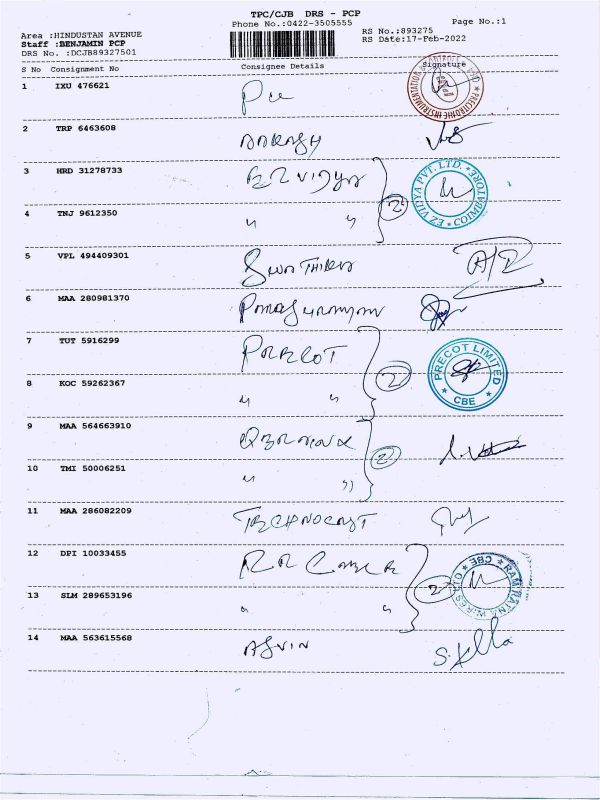 TPC/CJB DRS - PCP
Phone No.:0422-3505555
Page No.:1
Area :HINDUSTAN AVENUE
RS No.:893275
Staff :BENJAMIN PCP
RS Date:17-Feb-2022
DRS No. :DCJB89327501
S No Consignment No Consignee Details Signature
1 IXU 476621
2 TRP 6463608 AARASH
3 HRD 31278733 EZ VIDYA
EZ VIDYA PVT. LTD. COIMBATORE
2
4 TNJ 9612350 " "
5 VPL 494409301
6 MAA 280981370
7 TUT 5916299 PRECOT
PRECOT LIMITED CBE
2
8 KOC 59262367 " "
9 MAA 564663910
2
10 TMI 50006251 " "
11 MAA 286082209 TECHNOCRAT
12 DPI 10033455 R R CABLE
RAM RATNA WIRES LTD CBE
2
13 SLM 289653196 " "
14 MAA 563615568 ASVIN